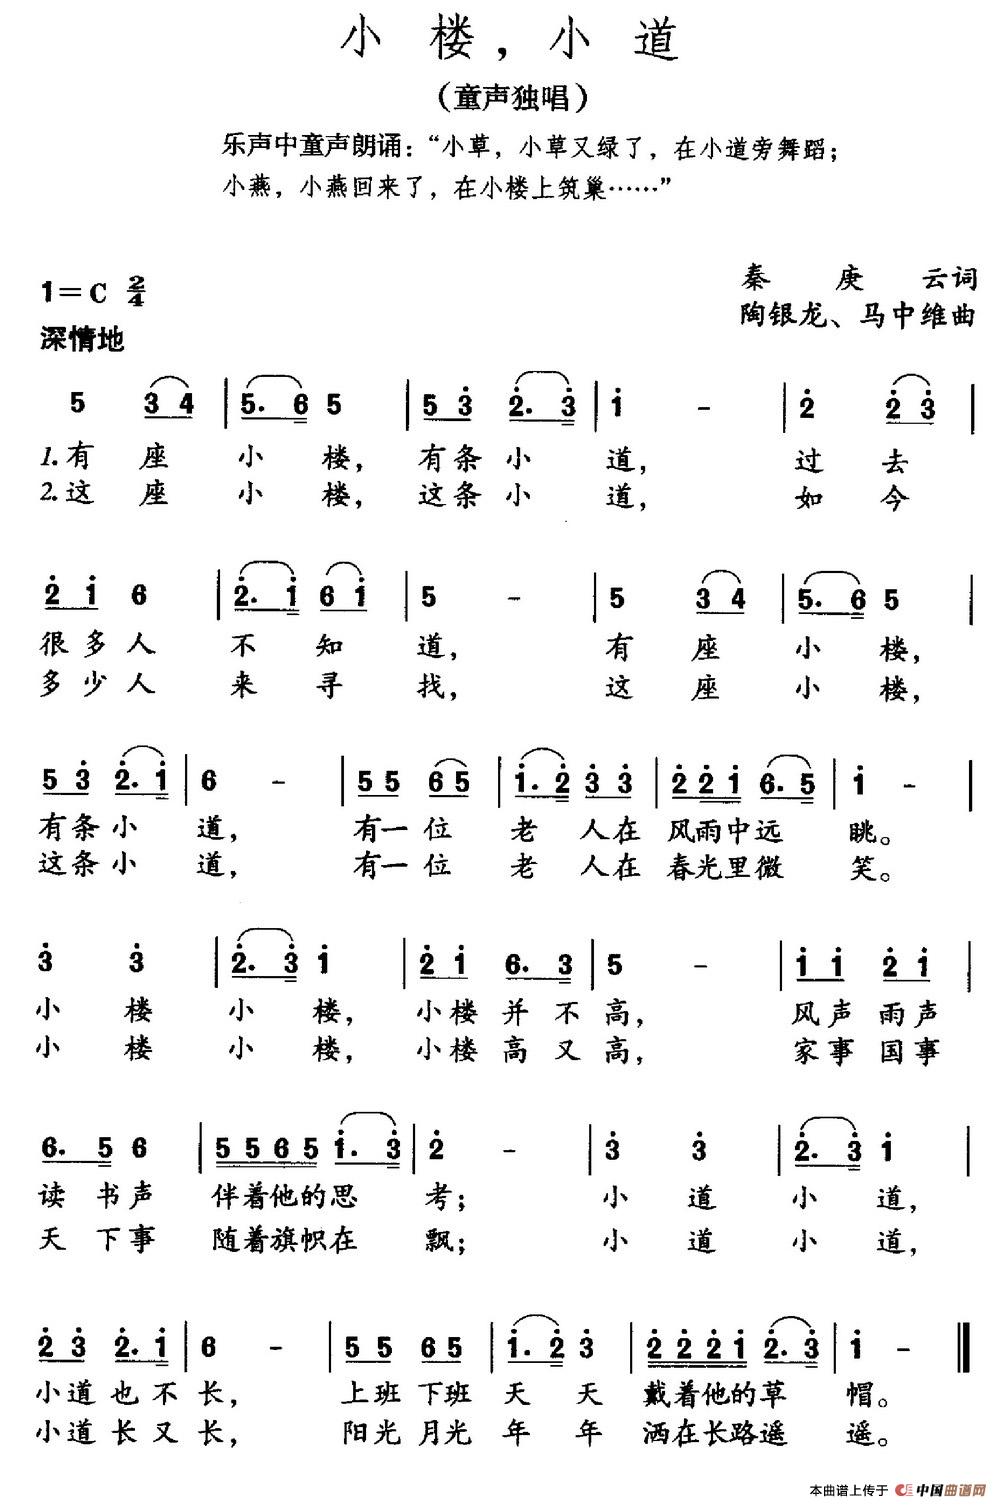 小楼，小道
（童声独唱）
乐声中童声朗诵：“小草，小草又绿了，在小道旁舞蹈；
小燕，小燕回来了，在小楼上筑巢……”
1=C 2/4
秦庚云词
陶银龙、马中维曲
深情地
5 3 4 | 5. 6 5 | 5 3̇ 2̇. 3̇ | 1̇ - | 2̇ 2̇ 3̇ |
1.有座小楼，有条小道，过去
2.这座小楼，这条小道，如今
2̇ 1̇ 6 | 2̇. 1̇ 6 1̇ | 5 - | 5 3 4 | 5. 6 5 |
很多人不知道，有座小楼，
多少人来寻找，这座小楼，
5 3̇ 2̇. 1̇ | 6 - | 5 5 6 5 | 1̇. 2̇ 3̇ 3̇ | 2̇ 2̇ 1̇ 6. 5 | 1̇ - |
有条小道，有一位老人在风雨中远眺。
这条小道，有一位老人在春光里微笑。
3̇ 3̇ | 2̇. 3̇ 1̇ | 2̇ 1̇ 6. 3 | 5 - | 1̇ 1̇ 2̇ 1̇ |
小楼小楼，小楼并不高，风声雨声
小楼小楼，小楼高又高，家事国事
6. 5 6 | 5 5 6 5 1̇. 3̇ | 2̇ - | 3̇ 3̇ | 2̇. 3̇ 1̇ |
读书声伴着他的思考；小道小道，
天下事随着旗帜在飘；小道小道，
2̇ 3̇ 2̇. 1̇ | 6 - | 5 5 6 5 | 1̇. 2̇ 3̇ | 2̇ 2̇ 2̇ 1̇ 2̇. 3̇ | 1̇ - ‖
小道也不长，上班下班天天戴着他的草帽。
小道长又长，阳光月光年年洒在长路遥遥。
本曲谱上传于 中国曲谱网